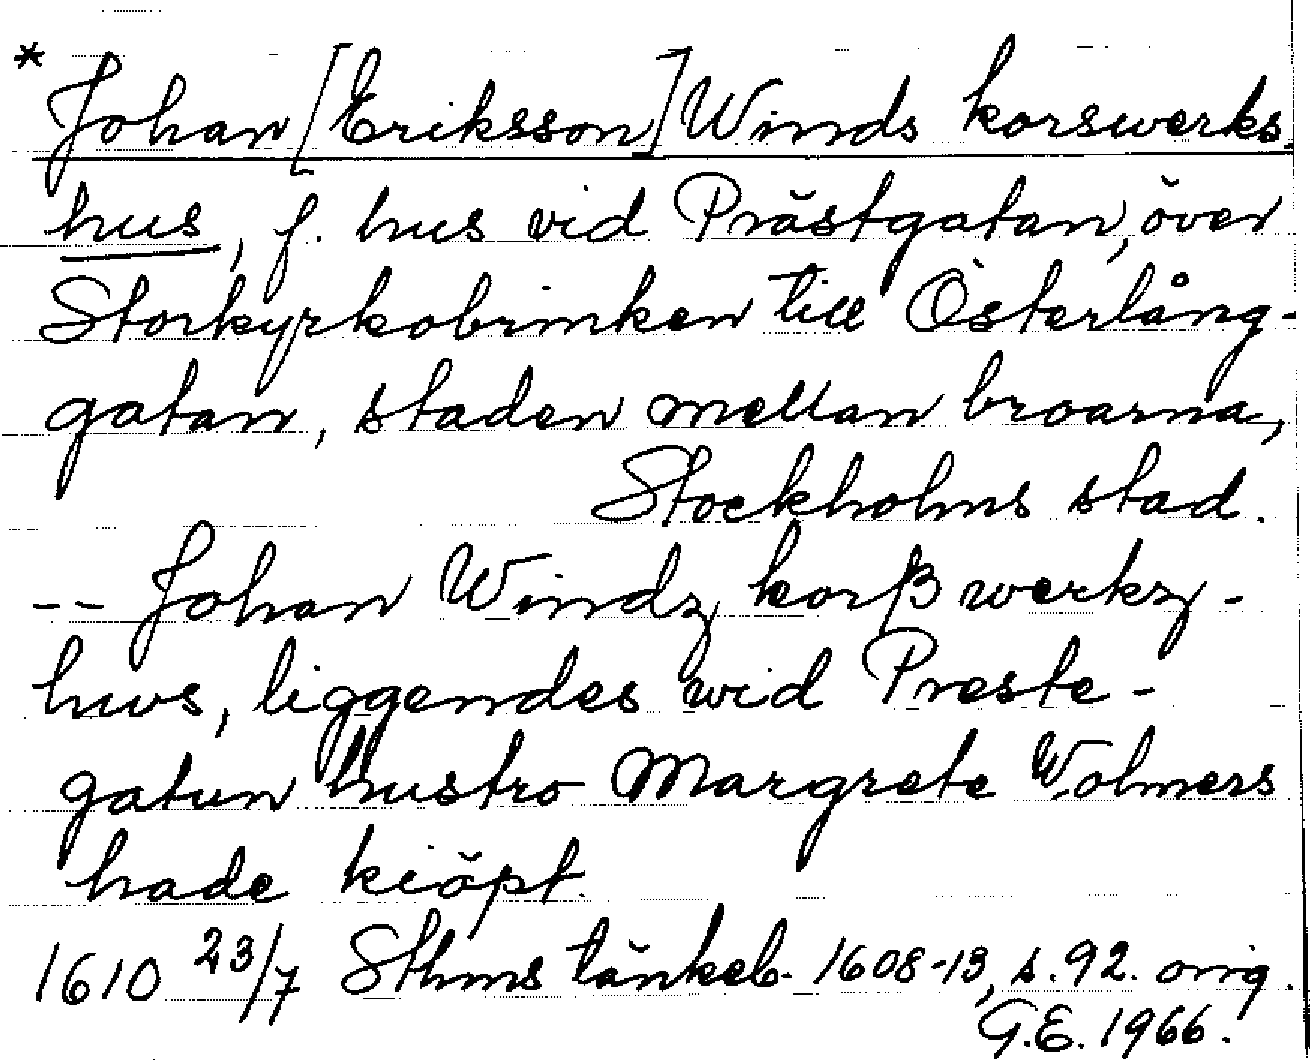 * Johan [Eriksson] Winds korswerks-
hus, f. hus vid Prästgatan, över
Storkyrkobrinken till Österlång-
gatan, staden mellan broarna,
Stockholms stad.
-- Johan Windz korßwerkz-
hws, liggendes wid Preste-
gatun hustro Margrete Wolmers
hade kiöpt.
1610 23/7 Sthms tänkeb. 1608-13, s. 92. orig.
G.E. 1966.